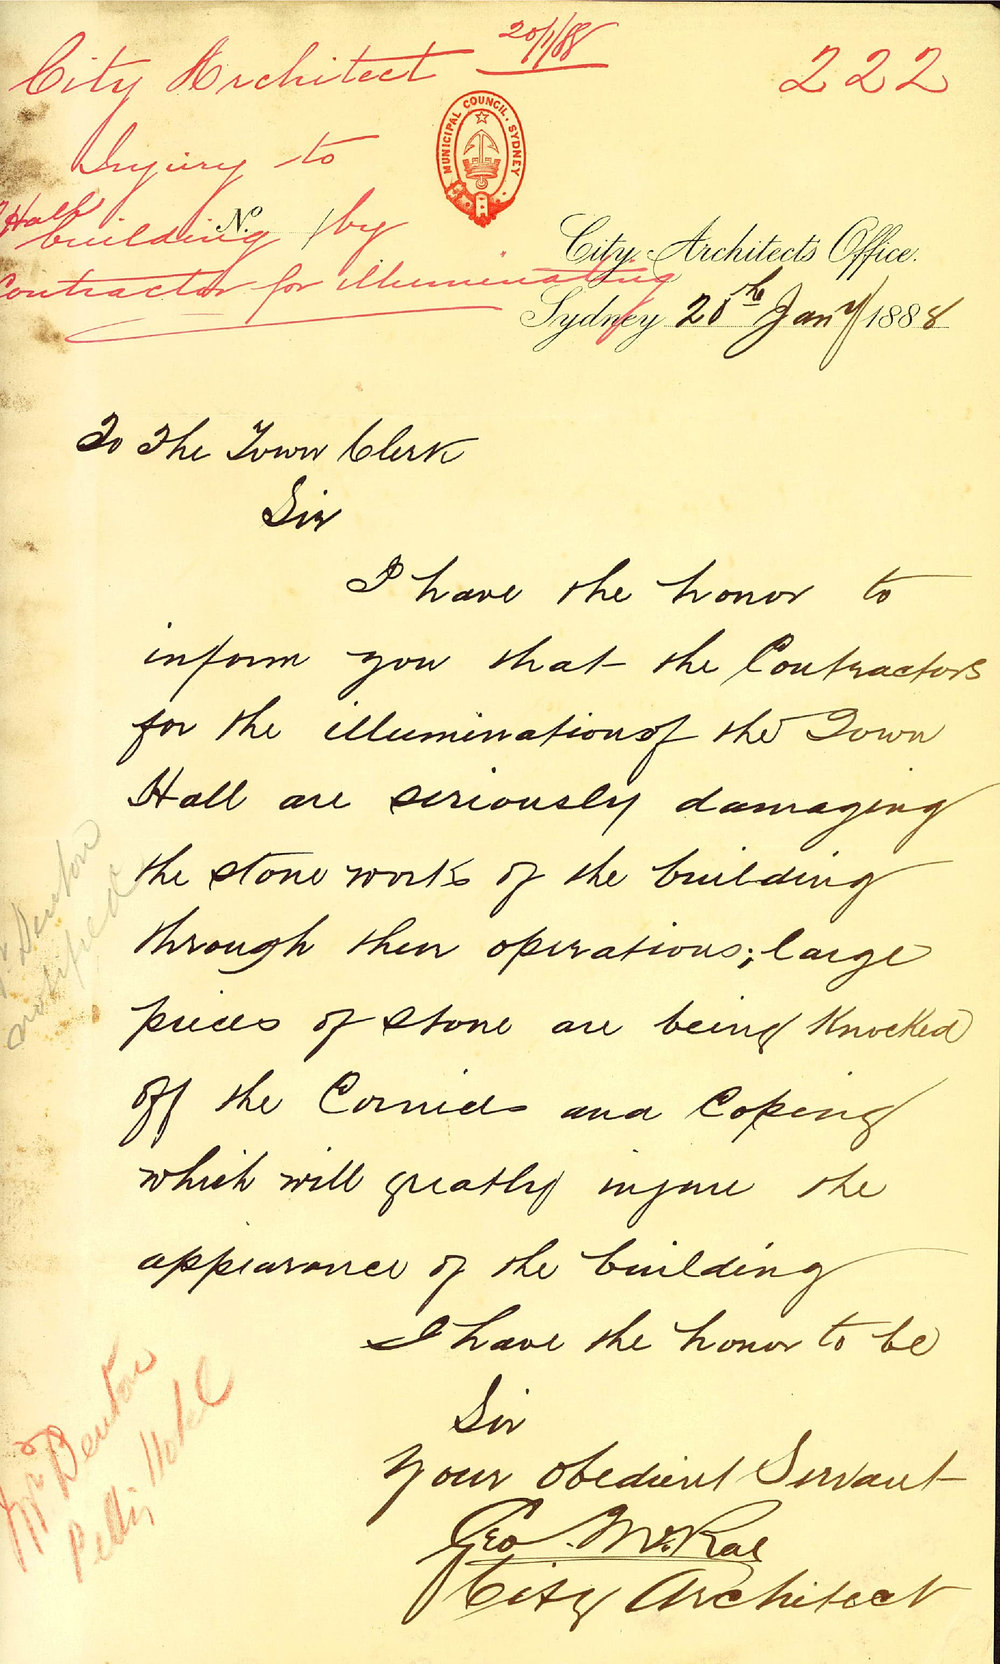 City Architect 20/1/88
222
MUNICIPAL COUNCIL. SYDNEY
Injury to
Hall
building by
Contractor for illuminating
No.
City Architects Office.
Sydney 20th Jany 1888
To The Town Clerk
Sir
I have the honor to
inform you that the Contractors
for the illumination of the Town
Hall are seriously damaging
the stone work of the building
through their operations; large
pieces of stone are being knocked
off the Cornices and Coping
which will greatly injure the
appearance of the building
I have the honor to be
Sir
Your obedient Servant
Geo. McRae
City Architect
Mr Denton
notified
Mr Denton
Hotel